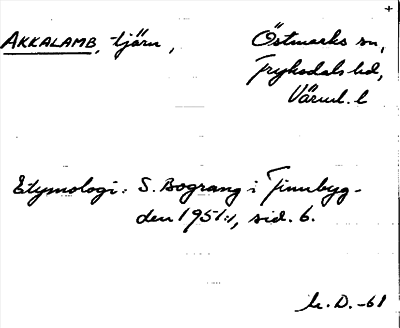 +
AKKALAMB, tjärn, Östmarks sn,
Fryksdals hd,
Värml. l
Etymologi: S. Bograng i Finnbyg-
den 1951:1, sid. 6.
h. D. -61